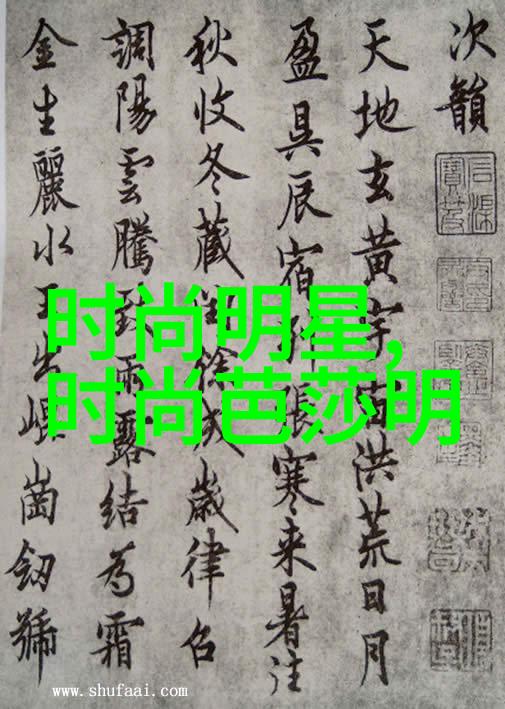 次韻
天地玄黄宇宙洪荒日月
盈昃辰宿列張寒来暑往
秋收冬藏閏餘成歳律召
調陽雲騰致雨露結為霜
金生麗水玉出崐崗劒號
时尚明星,
时尚芭莎明
www.shufaai.com